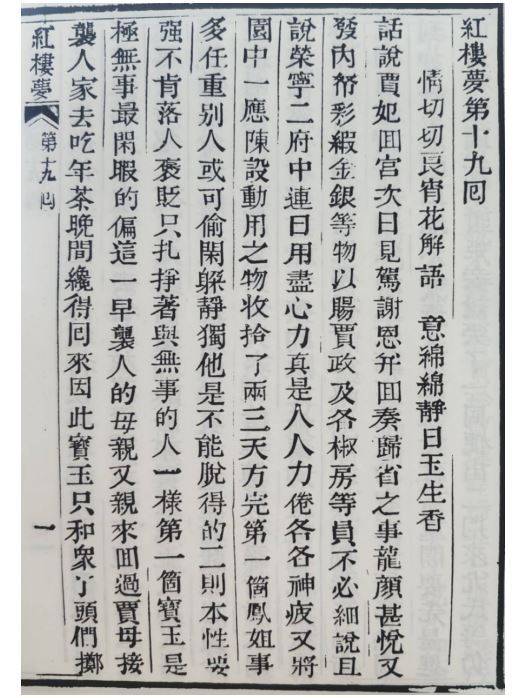 紅樓夢第十九囘
情切切良宵花解語　意綿綿靜日玉生香
話說賈妃囬宮次日見駕謝恩并囬奏歸省之事龍顏甚悅又
發內帑彩緞金銀等物以賜賈政及各椒房等員不必細說且
說榮寧二府中連日用盡心力真是人人力倦各各神疲又將
園中一應陳設動用之物收拾了兩三天方完第一箇鳳姐事
多任重別人或可偷閑躲靜獨他是不能脫得的二則本性要
强不肯落人褒貶只扎掙著與無事的人一樣第一箇寶玉是
極無事最閑暇的偏這一早襲人的母親又親來囬過賈母接
襲人家去吃年茶晚間纔得囘來因此寶玉只和衆丫頭們擲
紅樓夢
第十九囘
一